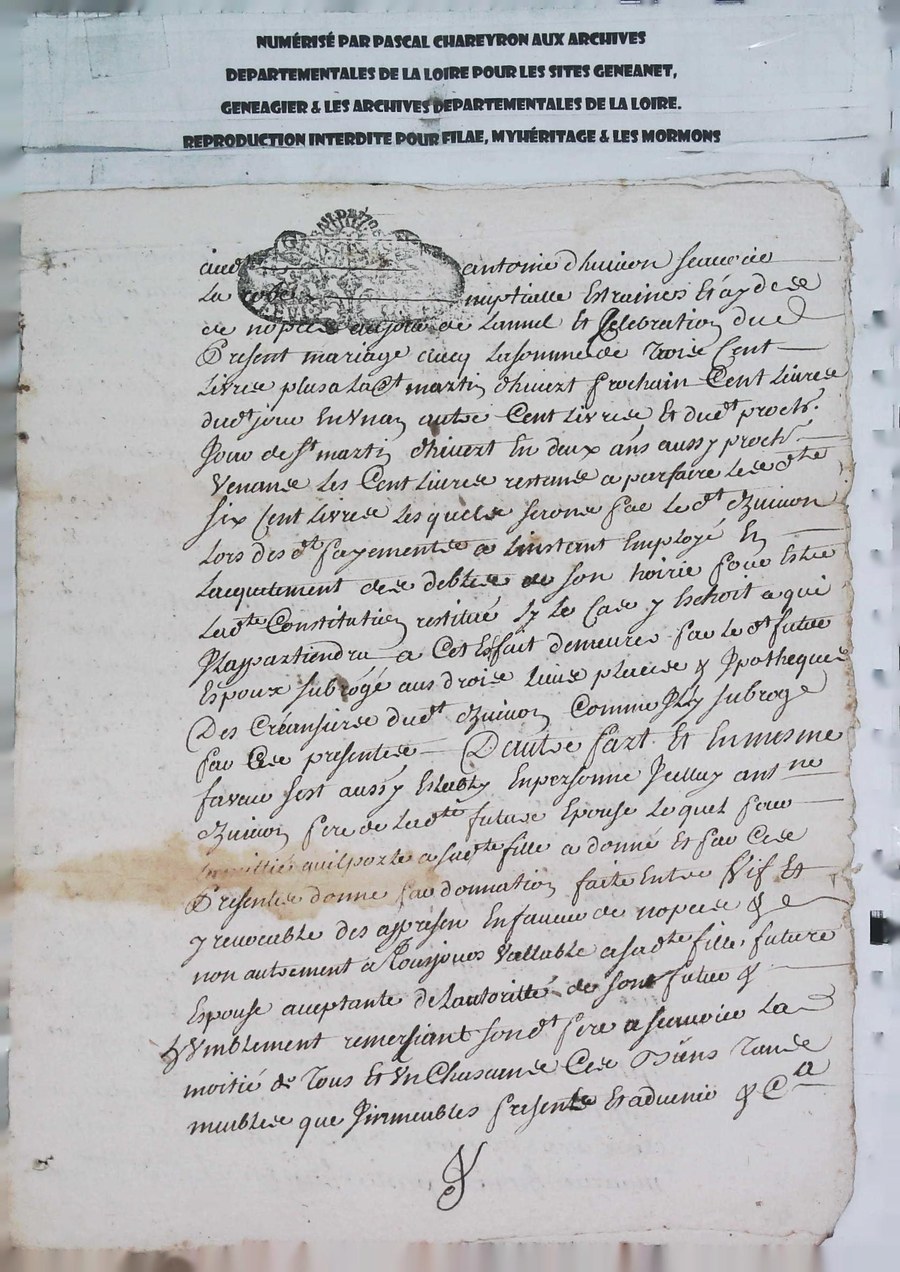 NUMÉRISÉ PAR PASCAL CHAREYRON AUX ARCHIVES
DEPARTEMENTALES DE LA LOIRE POUR LES SITES GENEANET,
GENEAGIER & LES ARCHIVES DEPARTEMENTALES DE LA LOIRE.
REPRODUCTION INTERDITE POUR FILAE, MYHÉRITAGE & LES MORMONS
antoine
La Robe nuptialle Estraines Et
de nopces au jour de Lannel Et Celebration dud
Present mariage Lasomme de Trois Cent
Livres plus a la St martin dhivert prochain Cent Livres
dudt jour En Vn an autre Cent Livres Et dudt proch.
Jour de St martin dhivert En deux ans aussy proch.
Venans Les Cent Livres restans a parfaire Lesdte
six Cent Livres Lesquels seront par le dt
Lors desdt payements a Linstant Employé En
Lacquitement des debtes de son hoirie pour Estre
Ladte Constitution restitué sy le Cas y Escheoit a qui
Jl appartiendra a Cet Esfait demeurera par le dt futur
Espoux subrogé aus drois Lieus places & Jpotheques
Des Creansiers dudt Comme Jl ly subroge
par Ces presentes D'autre part Et En mesme
faveur sest aussy Estably En personne
pere de Ladte future Epouse Lequel pour
Lamittié quil porte a sadte fille a donné Et par Ces
Presentes donne par donnation faite Entre Vif Et
yrevocable des appresen En faveur de nopces &
non autrement a Tousjours Vallable a sadte fille future
Espouse aceptante de Lautorité de sont futur &
Vmblement remersiant sondt pere La
moitié de Tous Et Vn Chascuns Ces Biens Tans
meubles que Jinmeubles presents Et advenir & Ca